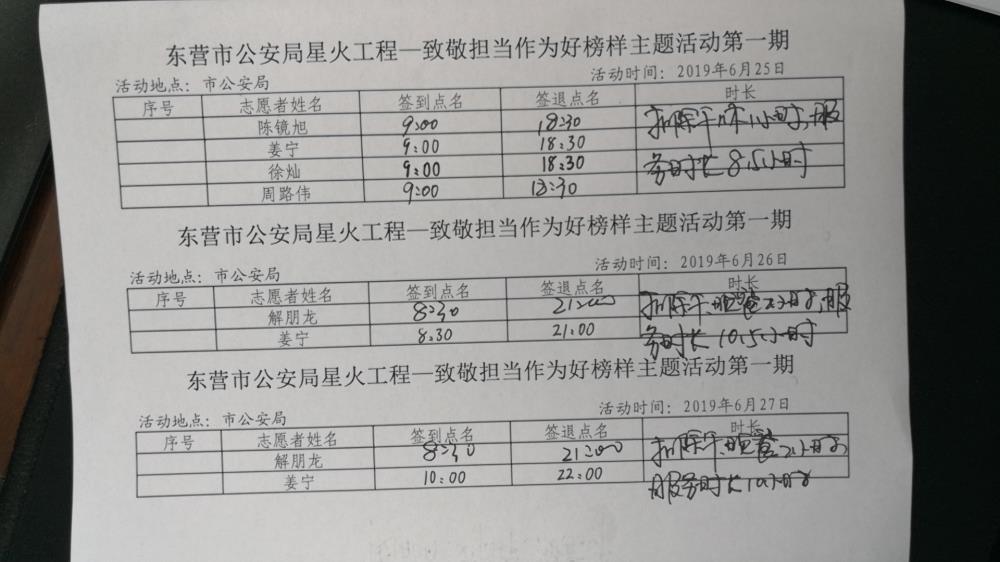 东营市公安局星火工程—致敬担当作为好榜样主题活动第一期
活动地点：市公安局 活动时间：2019年6月25日
序号 志愿者姓名 签到点名 签退点名 时长
陈镜旭 9:00 18:30 扣除午休1小时,服
姜宁 9:00 18:30
徐灿 9:00 18:30 务时长8.5小时
周路伟 9:00 18:30
东营市公安局星火工程—致敬担当作为好榜样主题活动第一期
活动地点：市公安局 活动时间：2019年6月26日
序号 志愿者姓名 签到点名 签退点名 时长
解朋龙 8:30 21:00 扣除午、晚餐2小时,服
姜宁 8:30 21:00 务时长10.5小时
东营市公安局星火工程—致敬担当作为好榜样主题活动第一期
活动地点：市公安局 活动时间：2019年6月27日
序号 志愿者姓名 签到点名 签退点名 时长
解朋龙 8:30 21:00 扣除午、晚餐2小时,
姜宁 10:00 22:00 服务时长10小时